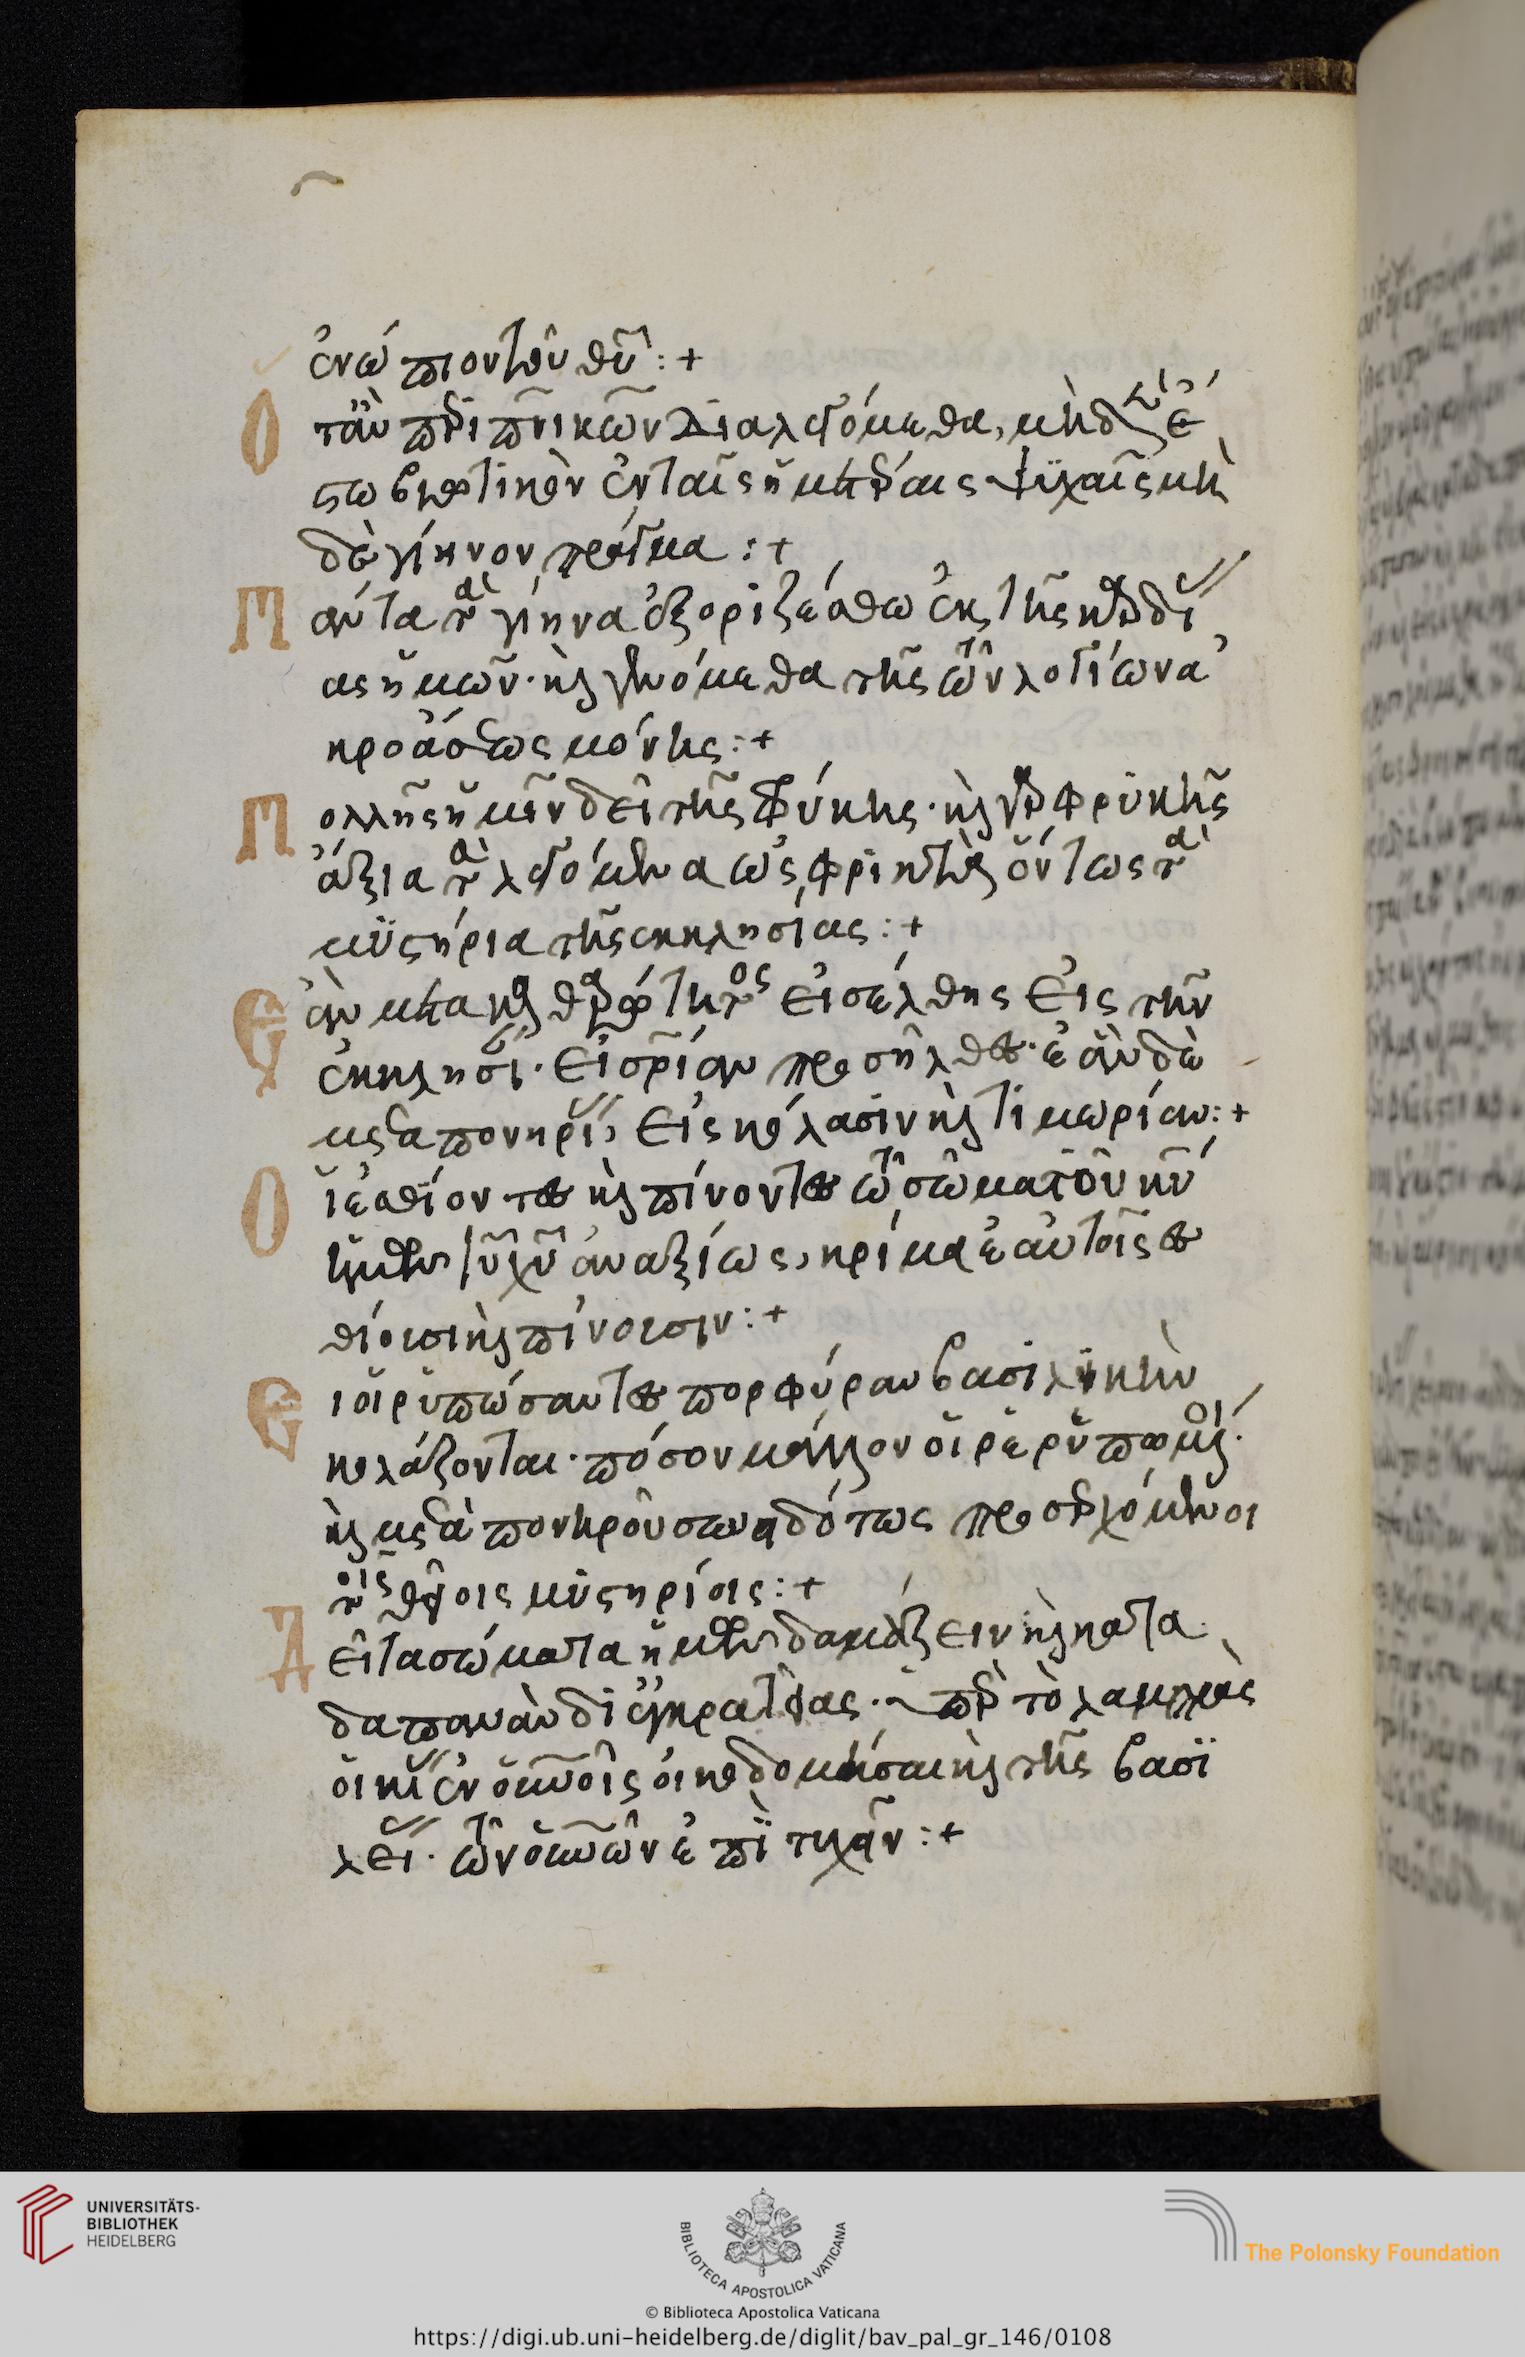 ἐνώπιον τοῦ θῦ :+
Ὅταν περὶ πνικῶν διαλεγόμεθα, μηδὲν ἔ
στω βιωτικὸν ἐν ταῖς ἡμετέραις ψυχαῖς μη
δὲ γήινον πρᾶγμα :+
Πάντα τὰ γήινα ἐξοριζέσθω ἐκ τῆς καρδί
ας ἡμῶν· καὶ γενόμεθα τῆς τῶν λογίων ἀ
κροάσεως μόνης :+
Πολλῆς ἡμῖν δεῖ τῆς φρίκης· καὶ γὰρ φρίκης
ἄξια τὰ λεγόμενα ὡς φρικτὰ καὶ ὄντως τὰ
μυστήρια τῆς ἐκκλησίας :+
Ἐὰν μετὰ καθαρότητος εἰσέλθης εἰς τὴν
ἐκκλησί· εἰς σρίαν προσῆλθες· ἐὰν δὲ
μετὰ πονηρί, εἰς κόλασιν καὶ τιμωρίαν :+
Οἱ ἐσθίοντες καὶ πίνοντες τὸ σῶμα τοῦ κυ
ἡμῶν ιυ χυ ἀναξίως, κρίμα ἑαυτοῖς ἐσ
θίουσι καὶ πίνουσιν :+
Εἰ οἱ ῥυπώσαντες πορφύραν βασιλικὴν
κολάζονται· πόσον μᾶλλον οἱ ῥερυπωμένοι·
καὶ μετὰ πονηροῦ συνειδότως προσερχόμενοι
τοῖς θείοις μυστηρίοις :+
Δεῖ τὰ σώματα ἡμῶν δαμάζειν καὶ κατα
δαπανᾶν δι ἐγκρατείας· πρὸς τὸ λαμπρὰς
οἰκί ἐν οὐνοῖς οἰκοδομῆσαι καὶ τῆς βασι
λεί· τῶν οὐνῶν ἐπιτυχεῖν :+
UNIVERSITÄTS-
BIBLIOTHEK
HEIDELBERG
BIBLIOTECA APOSTOLICA VATICANA
The Polonsky Foundation
© Biblioteca Apostolica Vaticana
https://digi.ub.uni-heidelberg.de/diglit/bav_pal_gr_146/0108